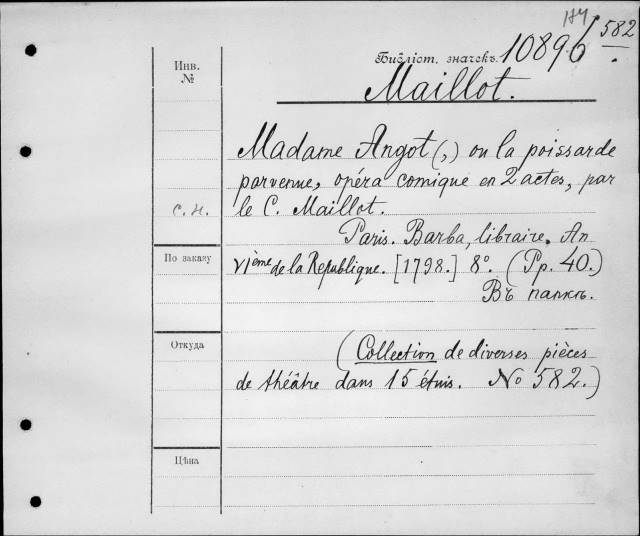 184
582
Инв. №
Библіот. значекъ. 10896
Maillot.
Madame Angot (,) ou la poissarde
parvenue, opéra comique en 2 actes, par
с. н.
le C. Maillot.
Paris. Barba, libraire. An
По заказу
VIème de la Republique. [1798.] 8º. (Pp. 40.)
Въ папкѣ.
Откуда
(Collection de diverses pièces
de théâtre dans 15 étuis. No 582.)
Цѣна